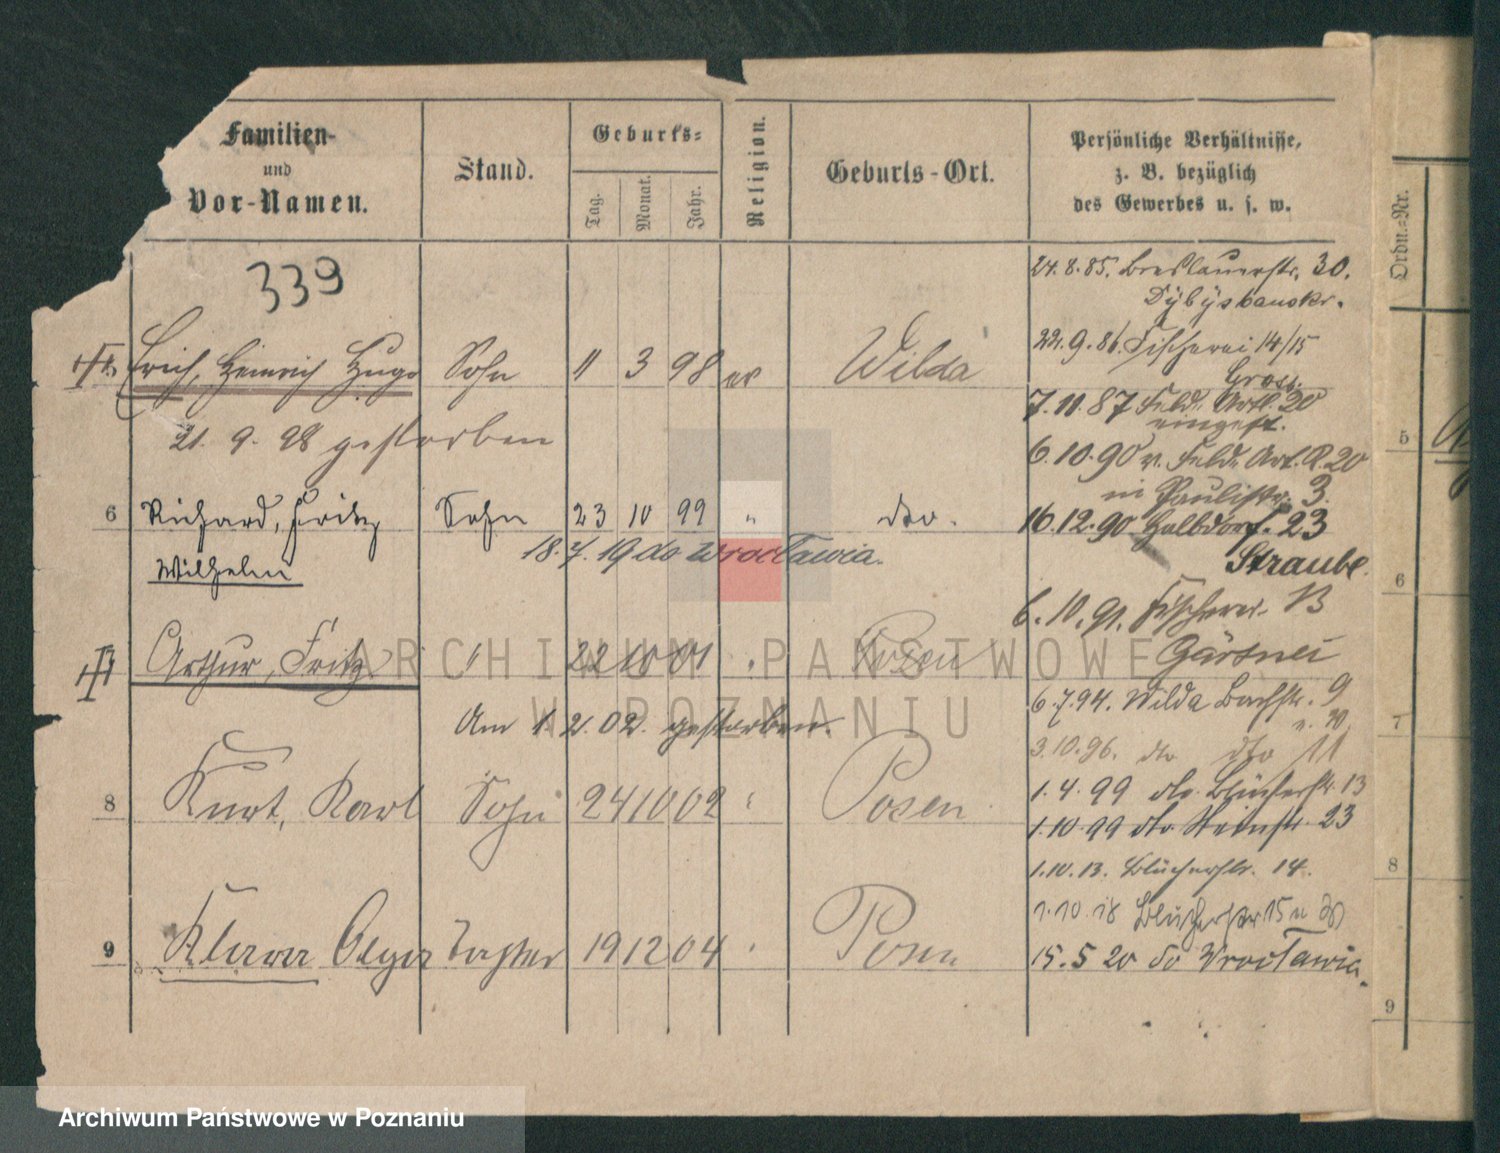 Familien-
und
Vor-Namen.
Stand.
Geburts-
Tag.
Monat.
Jahr.
Religion.
Geburts-Ort.
Persönliche Verhältnisse,
z. B. bezüglich
des Gewerbes u. s. w.
Ordn.-Nr.
339
24.8.85. Breslauerstr. 30.
22.9.86. Fischerei 14/15
Erich, Heinrich Hugo Sohn 11 3 98 ev Wilda
7.10.87 Feld Artl. 20
eingest.
21. 9. 98 gestorben
6.10.90 v. Feld Art. R. 20
in Paulistr. 3.
6 Richard, Fritz Sohn 23 10 99 " dto.
16.12.90 Halbdorf. 23
Wilhelm
18.7.19 do Wrocławia.
Straube.
6.10.91. Fischerei 13
Arthur, Fritz " 22 10 01 Posen
Gärtner
6.7.94. Wilda Bachstr. 9
Am 1.2.02. gestorben.
3.10.96. dto dto 11
8 Kurt, Karl Sohn 24 10 02 Posen
1.4.99 dto. Blücherstr. 13
1.10.99 dto Steinstr. 23
1.10.13. Blücherstr. 14.
1.10.18 Blücherstr 15
9 Klara Olga Tochter 19 12 04 Posen
15.5 20 do Wrocławia.
5
6
7
8
9
ARCHIWUM PAŃSTWOWE
W POZNANIU
Archiwum Państwowe w Poznaniu